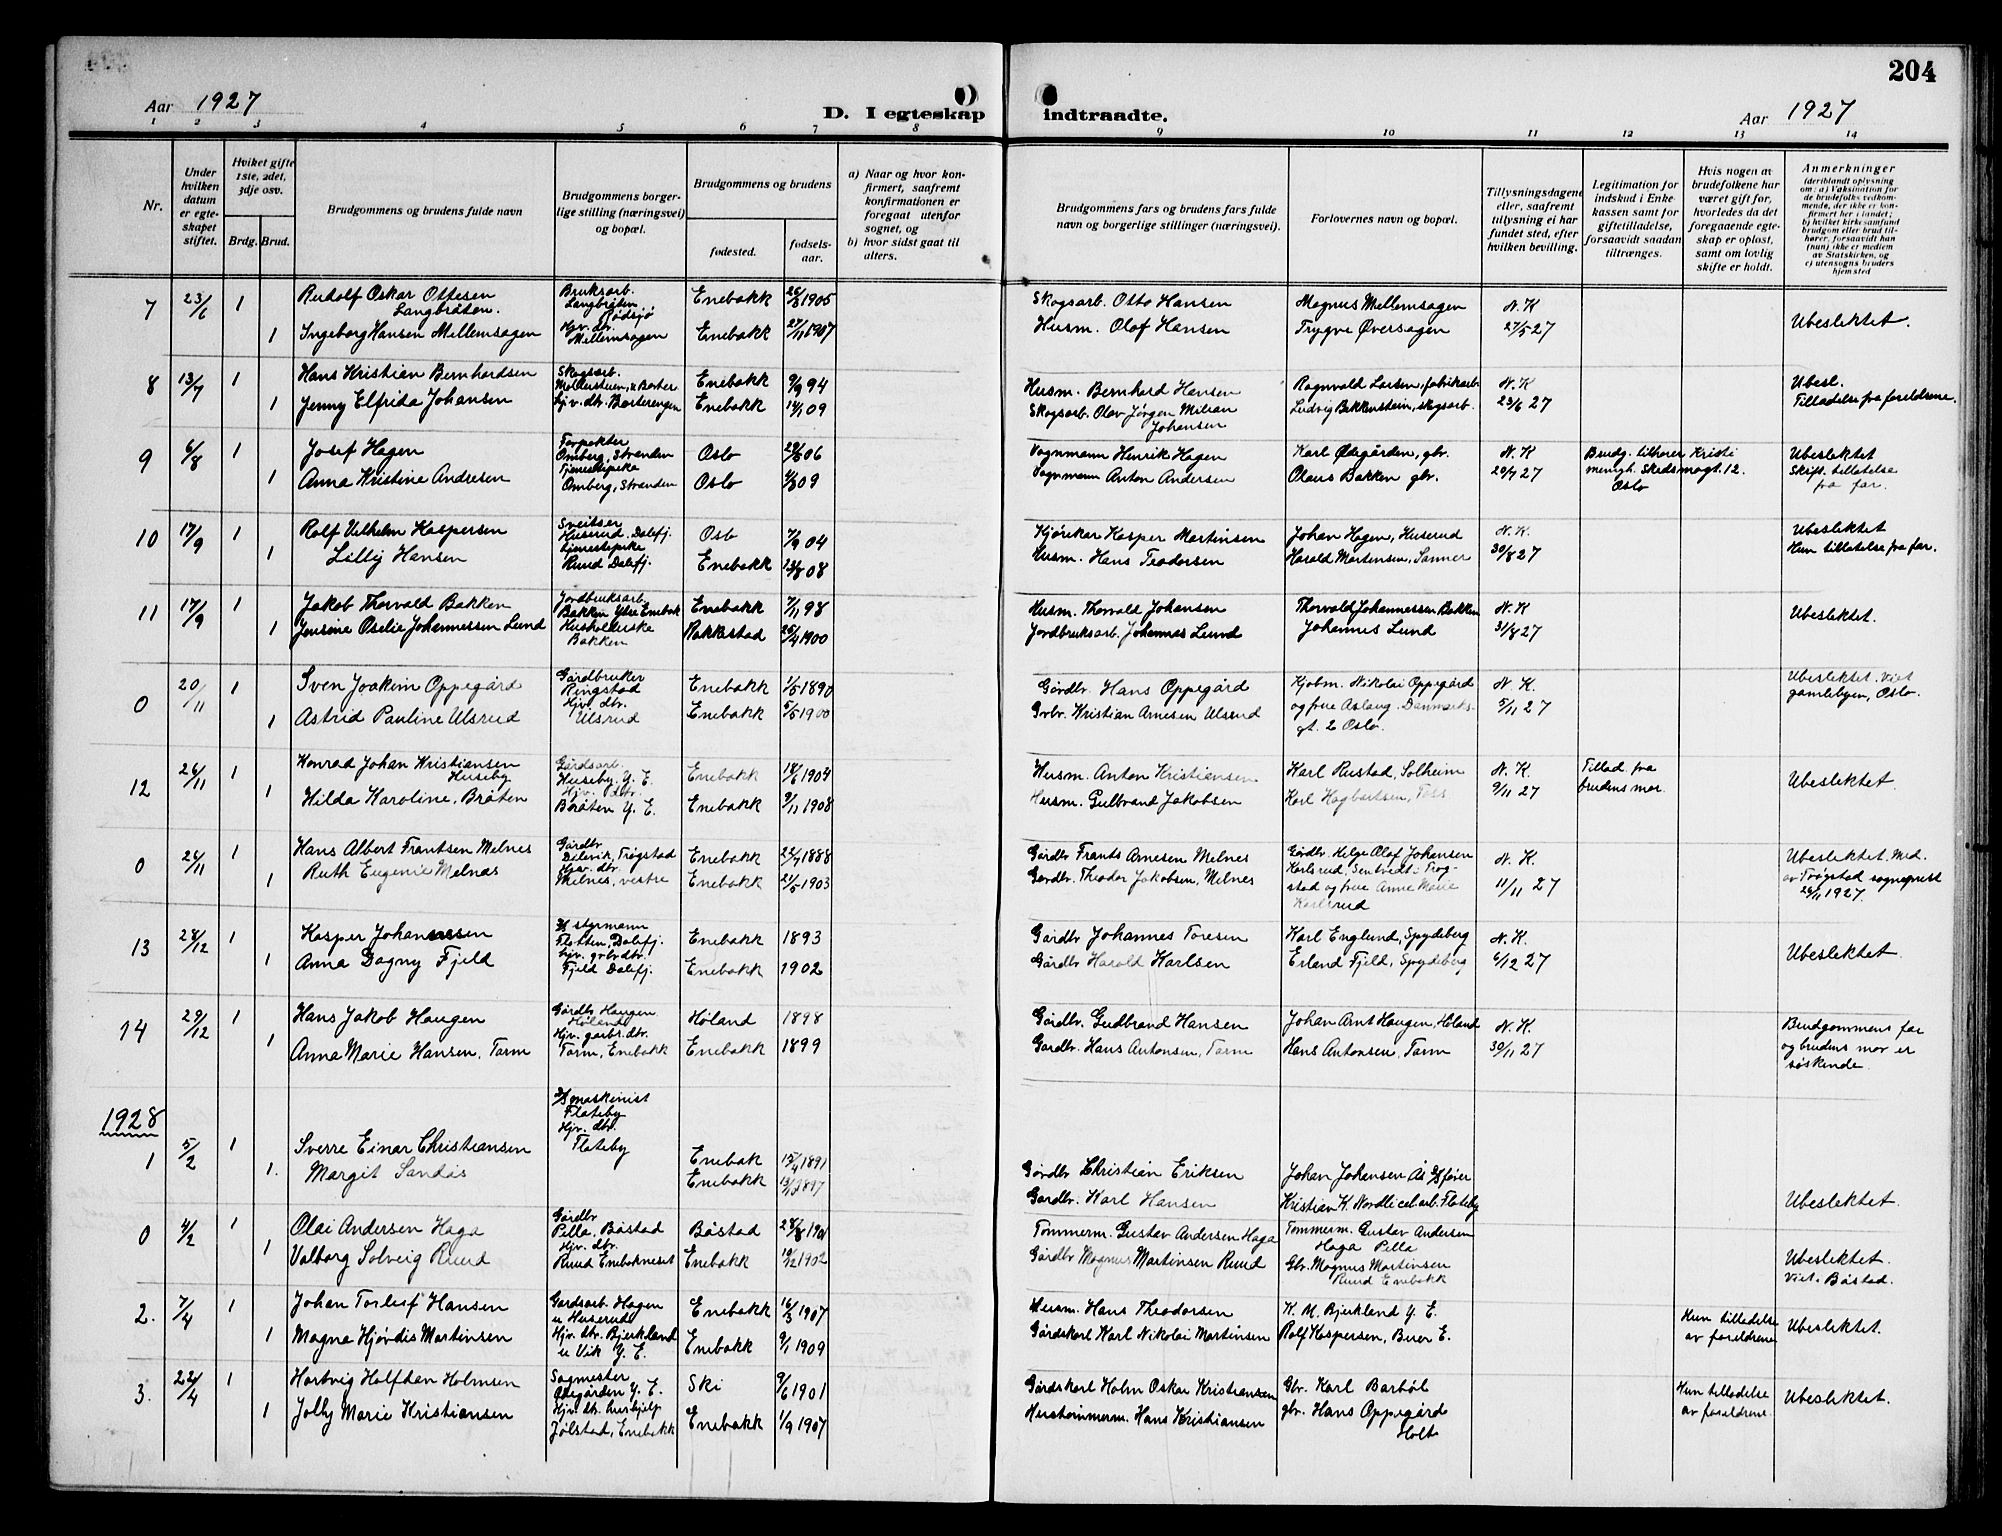 204
Aar 1927
D. I egteskap indtraadte.
Aar 1927
1 2 3 4 5 6 7 8 9 10 11 12 13 14
Nr.
Under hvilken datum er egteskapet stiftet.
Hvilket gifte 1ste, 2det, 3dje osv.
Brdg. Brud.
Brudgommens og brudens fulde navn
Brudgommens borgerlige stilling (næringsvei) og bopæl.
Brudgommens og brudens
fødested.
fødselsaar.
a) Naar og hvor konfirmert, saafremt konfirmationen er foregaat utenfor sognet, og
b) hvor sidst gaat til alters.
Brudgommens fars og brudens fars fulde navn og borgerlige stillinger (næringsvei).
Forlovernes navn og bopæl.
Tillysningsdagene eller, saafremt tillysning ei har fundet sted, efter hvilken bevilling.
Legitimation for indskud i Enkekassen samt for giftetilladelse, forsaavidt saadan tiltrænges.
Hvis nogen av brudefolkene har været gift før, hvorledes da det foregaaende egteskap er opløst, samt om lovlig skifte er holdt.
Anmerkninger (deriblandt oplysning om: a) Vaksination for de brudefolks vedkommende, der ikke er konfirmert her i landet; b) hvilket kirkesamfund brudgom eller brud tilhører, forsaavidt han (hun) ikke er medlem av Statskirken, og c) utensogns bruders hjemsted
7 23/6 1 Rudolf Oskar Ottesen Langbråten. Bruksarb. Langbråten Rødsjø Enebakk 26/3 1905 Skogsarb. Otto Hansen Magnus Mellemsagen N. K
1 Ingeborg Hansen Mellemsagen Hjv. dtr. Mellemsagen Enebakk 27/11 1907 Husm. Olaf Hansen Trygve Øversagen 27/5 27 Ubeslektet.
8 13/7 1 Hans Kristian Bernhardsen Skogsarb. Enebakk 9/9 94 Husm. Bernhard Hansen Ragnvald Larsen, fabrikarb. N. K Ubesl.
1 Jenny Elfrida Johansen hjv. dtr. Børterengen Enebakk 14/1 09 Skogsarb. Olav Jørgen Milian Johansen Ludvig Bekkenstein, skogsarb. 23/6 27 Tilladelse fra foreldrene.
9 6/8 1 Josef Hagen Forpakter Omberg, Stranden Oslo 29/5 06 Vognmann Henrik Hagen Karl Ødegården, gbr. N. K Brudg. tilhører Kristi Ubeslektet
1 Anna Kristine Andresen Tjenestepike Omberg, Stranden Oslo 4/3 09 Vognmann Anton Andersen Olaus Bakken gbr. 20/7 27 menigh. Skedsmogt. 12. Oslo Skift. tillatelse fra far.
10 17/9 1 Rolf Vilhelm Kaspersen Sveitser Huserud. Dalefj. Oslo 7/9 04 Kjørekar Kasper Martinsen Johan Hagen, Huserud N. K. Ubeslektet
1 Lilly Hansen tjenestepike Ruud Dalefj. Enebakk 13/8 08 Husm. Hans Teodorsen Harald Mortensen, Sanner 30/8 27 Hun tillatelse fra far.
11 17/9 1 Jakob Thorvald Bakken Jordbruksarb. Bakken Ytre Enebak Enebakk 7/11 98 Husm. Thorvald Johansen Thorvald Johannessen Bakken N. K Ubeslektet.
1 Jensine Oselie Johannessen Lund Husholderske Bakken Rakkestad 25/4 1900 Jordbruksarb. Johannes Lund Johannes Lund 31/8 27
0 20/11 1 Sven Joakim Oppegård Gårdbruker Ringstad Enebakk 1/5 1890 Gårdbr. Hans Oppegård Kjøbm. Nikolai Oppegård N. K. Ubeslektet. Viet
1 Astrid Pauline Ulsrud Hjv. dtr. Ulsrud Enebakk 5/5 1900 Grbr. Kristian Arnesen Ulsrud og frue Aslaug. Danmarksgt. 2 Oslo. 5/11 27 gamlebyen, Oslo.
12 26/11 1 Konrad Johan Kristiansen Huseby Gårdsarb. Huseby. Y. E. Enebakk 14/6 1904 Husm. Anton Kristiansen Karl Rustad, Solheim N. K. Tillad. fra
1 Hilda Karoline, Bråten Hjv. dtr. Bråten Y. E. Enebakk 9/11 1908 Husm. Gulbrand Jakobsen Karl Hagbartsen, 9/11 27 brudens mor. Ubeslektet.
0 26/11 1 Hans Albert Frantsen Melnes Gårdbr. Trøgstad Enebakk 22/7 1888 Gårdbr. Frants Arnesen Melnes Gårdbr. Helge Olaf Johansen N. K. Ubeslektet. Med.
1 Ruth Eugenie Melnæs Hjv. dtr. Melnes, vestre Enebakk 21/5 1903 Gårdbr. Theodor Jakobsen, Melnes Karlsrud, Sentvedt i Trøgstad og frue Anne Marie Karlsrud 11/11 27 av Trøgstad sogneprest 26/11 1927.
13 28/12 1 Kasper Johannessen styrmann Flatten, Dalefj. Enebakk 1893 Gårdbr Johannes Toresen Karl Englund, Spydeberg N. K.
1 Anna Dagny Fjeld hjv. grbr dtr. Fjeld Dalefj. Enebakk 1902 Gårdbr Harald Karlsen Erland Fjeld, Spydeberg 6/12 27 Ubeslektet.
14 29/12 1 Hans Jakob Haugen Gårdbr Haugen Høland Høland 1898 Gårdbr. Gudbrand Hansen Johan Arnt Haugen, Høland N. K. Brudgommens far
1 Anna Marie Hansen, Tarm Hjv. garbr. dtr. Tarm, Enebakk Enebakk 1899 Gardbr. Hans Antonsen, Tarm Hans Antonsen, Tarm 30/11 27 og brudens mor er søskende.
1928
1 5/2 1 Sverre Einar Christiansen maskinist Flateby Enebak 15/4 1891 Gårdbr Christian Eriksen Johan Johansen Ås fører
1. Margit Sandås Hjv. dtr. Flateby Enebakk 1897 Gardbr. Karl Hansen Kristian K. Nordli cel. arb. Flateby Ubeslektet.
0 4/2 1 Olai Andersen Haga Gårdbr Pella, Båstad Båstad 28/8 1901 Tømmerm. Gustav Andersen Haga Tømmerm. Gustav Andersen Haga Pella
1 Valborg Solveig Ruud Hjv. dtr. Ruud Enebakneset Enebakk 10/12 1902 Gårdbr Magnus Martinsen Ruud Gbr. Magnus Martinsen Ruud Enebakk Ubeslektet. Viet. Båstad.
2. 7/4 1 Johan Torleif Hansen Gardsarb. Hagen u Huserud Enebakk 16/3 1907 Husm. Hans Theodorsen K. M. Bjerkland Y. E. Hun tilladelse
1 Magna Hjørdis Martinsen Hjv. dtr. Bjerkland u Vik Y. E. Enebakk 9/1 1909 Gårdskarl Karl Nikolai Martinsen Rolf Kaspersen, Buer E. av foreldrene Ubeslektet.
3. 22/4 1 Hartvig Halfdan Holmsen Sagmester Ødegården Y. E. Ski 9/6 1901 Gårdskarl Holm Oskar Kristiansen Gbr. Karl Barbøl Hun tilladelse
1 Jolly Marie Kristiansen Hjv. dtr. hushjelp Jølstad, Enebakk Enebakk 1/9 1907 Hustømmerm. Hans Kristiansen gbr. Hans Oppegård Holt av foreldrene Ubeslektet.